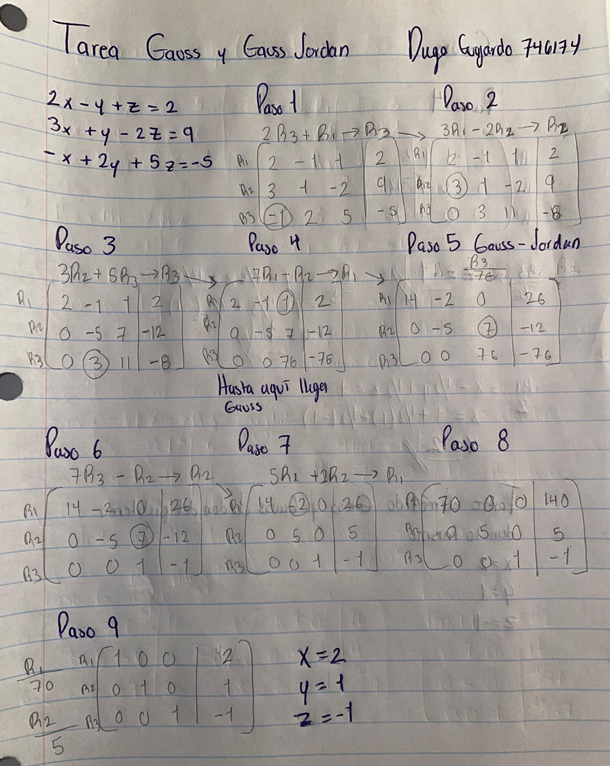 Tarea Gauss y Gauss Jordan
746174
2x - y + z = 2
3x + y - 2z = 9
-x + 2y + 5z = -5
Paso 1
2R3 + R1 → R3
R1 2 -1 1 | 2
R2 3 1 -2 | 9
R3 -1 2 5 | -5
Paso 2
3R1 - 2R2 → R2
R1 2 -1 1 | 2
R2 3 1 -2 | 9
R3 0 3 11 | -8
Paso 3
3R2 + 5R3 → R3
R1 2 -1 1 | 2
R2 0 -5 7 | -12
R3 0 3 11 | -8
Paso 4
7R1 - R2 → R1
R1 2 -1 1 | 2
R2 0 -5 7 | -12
R3 0 0 76 | -76
Hasta aquí llega
Gauss
Paso 5 Gauss-Jordan
R3
76
R1 14 -2 0 | 26
R2 0 -5 7 | -12
R3 0 0 76 | -76
Paso 6
7R3 - R2 → R2
R1 14 -2 0 | 26
R2 0 -5 7 | -12
R3 0 0 1 | -1
Paso 7
5R1 + 2R2 → R1
14 -2 0 | 26
R2 0 5 0 | 5
R3 0 0 1 | -1
Paso 8
R1 70 0 0 | 140
0 5 0 | 5
R3 0 0 1 | -1
Paso 9
R1
70
R2
5
R1 1 0 0 | 2
R2 0 1 0 | 1
R3 0 0 1 | -1
x = 2
y = 1
z = -1